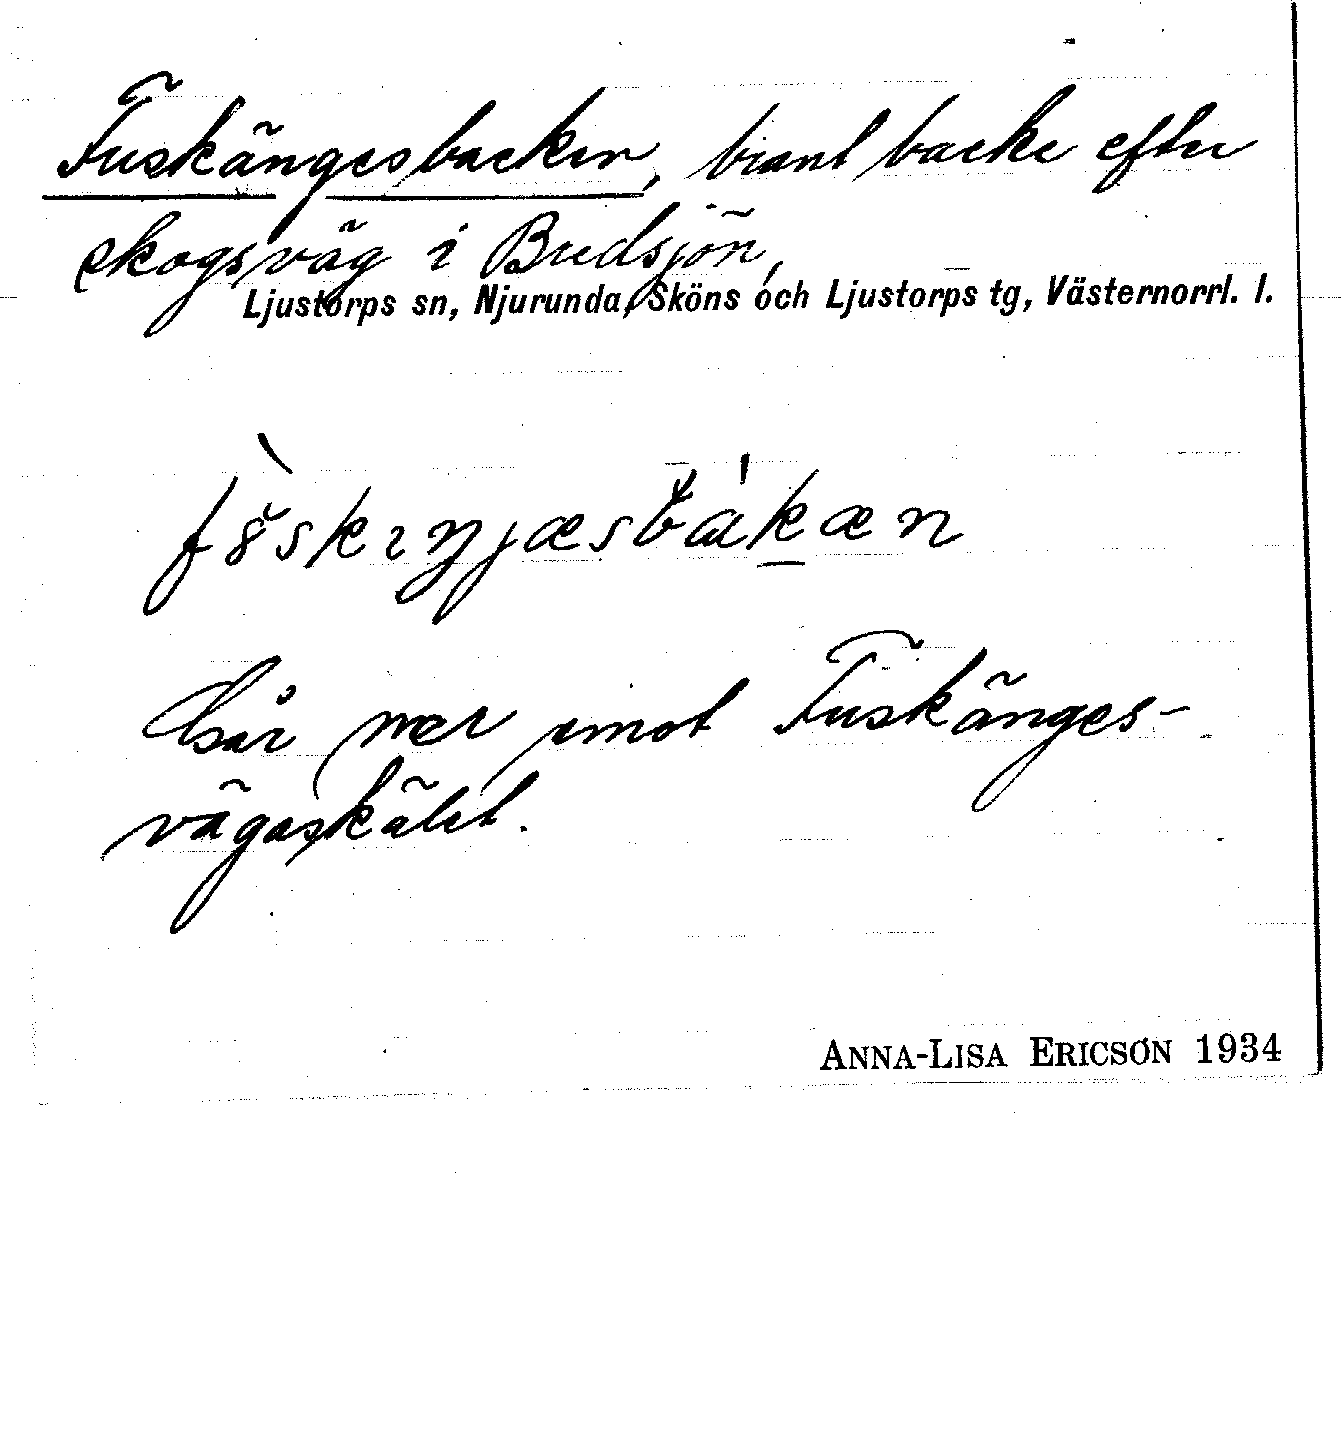 Fuskängesbacken, brant backe efter
skogsväg i Bredsjön,
Ljustorps sn, Njurunda, Sköns och Ljustorps tg, Västernorrl. l.
Går ner emot Fuskänges-
vägaskälet.
ANNA-LISA ERICSON 1934